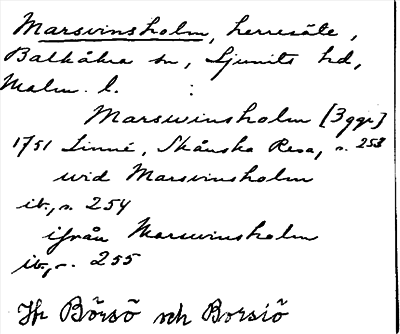 Marsvinsholm, herresäte,
Balkåkra sn, Ljunits hd,
Malm. l. :
Marswinsholm [3 ggr]
1751 Linné, Skånska Resa, s. 253
wid Marsvinsholm
ib., s. 254
ifrån Marswinsholm
ib., s. 255
Jfr Börsö och Borsiö